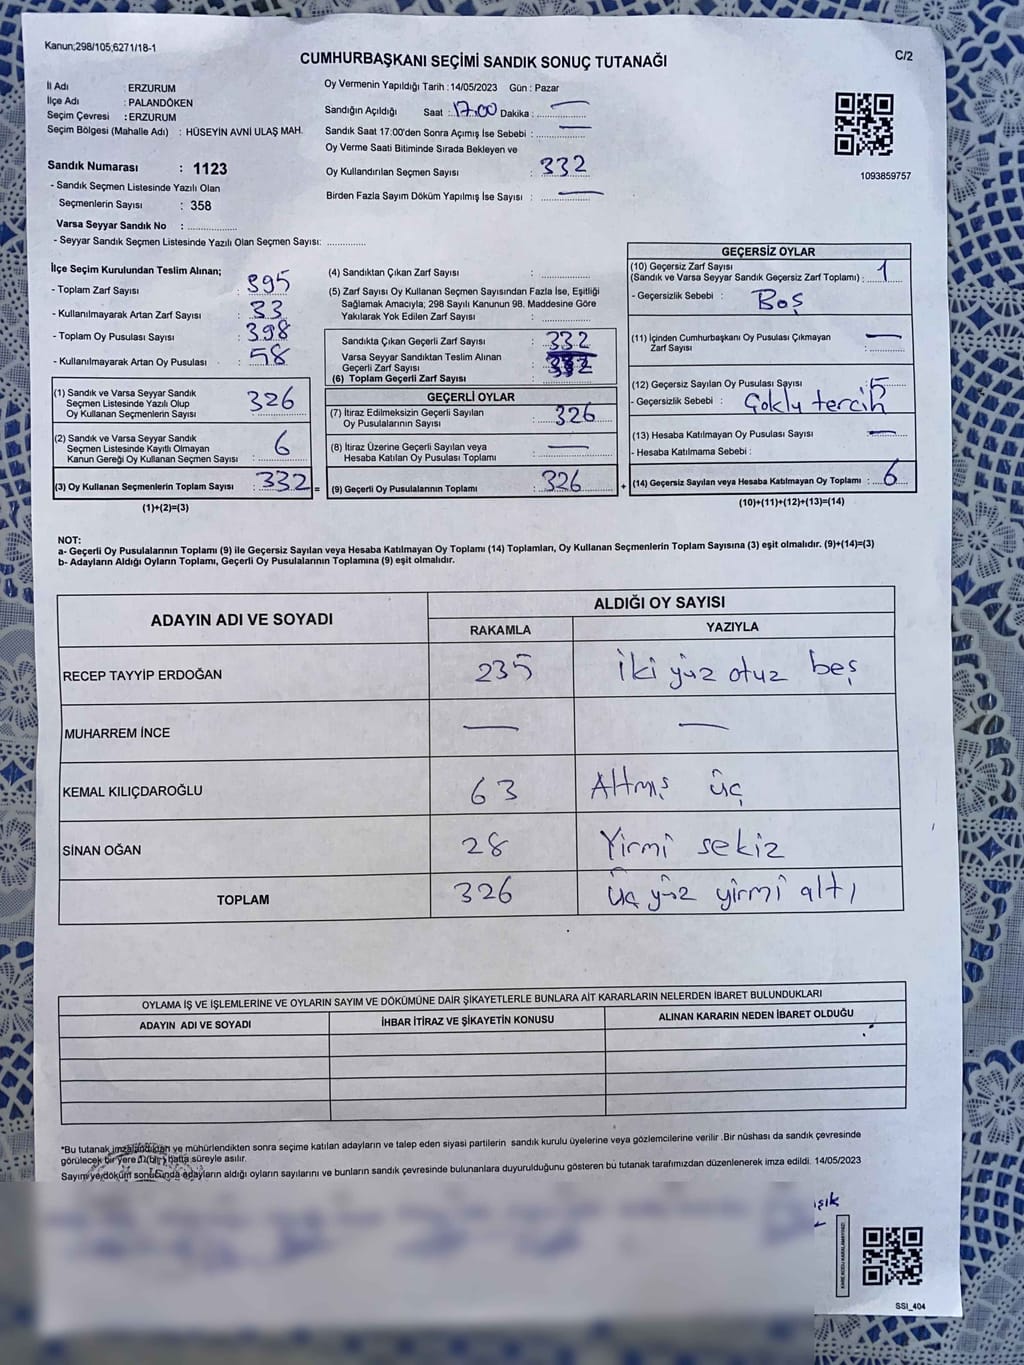 Kanun;298/105;6271/18-1
CUMHURBAŞKANI SEÇİMİ SANDIK SONUÇ TUTANAĞI
C/2
İl Adı : ERZURUM
İlçe Adı : PALANDÖKEN
Seçim Çevresi : ERZURUM
Seçim Bölgesi (Mahalle Adı) : HÜSEYİN AVNİ ULAŞ MAH.
Sandık Numarası : 1123
- Sandık Seçmen Listesinde Yazılı Olan
Seçmenlerin Sayısı : 358
Varsa Seyyar Sandık No : ..................
- Seyyar Sandık Seçmen Listesinde Yazılı Olan Seçmen Sayısı: ..............
Oy Vermenin Yapıldığı Tarih : 14/05/2023 Gün : Pazar
Sandığın Açıldığı Saat : 17.00 Dakika : —
Sandık Saat 17:00'den Sonra Açımış İse Sebebi : —
Oy Verme Saati Bitiminde Sırada Bekleyen ve
Oy Kullandırılan Seçmen Sayısı : 332
Birden Fazla Sayım Döküm Yapılmış İse Sayısı : —
1093859757
İlçe Seçim Kurulundan Teslim Alınan;
- Toplam Zarf Sayısı : 395
- Kullanılmayarak Artan Zarf Sayısı : 33
- Toplam Oy Pusulası Sayısı : 398
- Kullanılmayarak Artan Oy Pusulası : 58
(1) Sandık ve Varsa Seyyar Sandık
Seçmen Listesinde Yazılı Olup
Oy Kullanan Seçmenlerin Sayısı : 326
(2) Sandık ve Varsa Seyyar Sandık
Seçmen Listesinde Kayıtlı Olmayan
Kanun Gereği Oy Kullanan Seçmen Sayısı : 6
(3) Oy Kullanan Seçmenlerin Toplam Sayısı : 332 =
(1)+(2)=(3)
(4) Sandıktan Çıkan Zarf Sayısı :
(5) Zarf Sayısı Oy Kullanan Seçmen Sayısından Fazla İse, Eşitliği
Sağlamak Amacıyla; 298 Sayılı Kanunun 98. Maddesine Göre
Yakılarak Yok Edilen Zarf Sayısı :
Sandıkta Çıkan Geçerli Zarf Sayısı : 332
Varsa Seyyar Sandıktan Teslim Alınan
Geçerli Zarf Sayısı :
(6) Toplam Geçerli Zarf Sayısı : 332
GEÇERLİ OYLAR
(7) İtiraz Edilmeksizin Geçerli Sayılan
Oy Pusulalarının Sayısı : 326
(8) İtiraz Üzerine Geçerli Sayılan veya
Hesaba Katılan Oy Pusulası Toplamı : —
(9) Geçerli Oy Pusulalarının Toplamı : 326 +
GEÇERSİZ OYLAR
(10) Geçersiz Zarf Sayısı
(Sandık ve Varsa Seyyar Sandık Geçersiz Zarf Toplamı) : 1
- Geçersizlik Sebebi : Boş
(11) İçinden Cumhurbaşkanı Oy Pusulası Çıkmayan
Zarf Sayısı : —
(12) Geçersiz Sayılan Oy Pusulası Sayısı : 5
- Geçersizlik Sebebi : Çoklu tercih
(13) Hesaba Katılmayan Oy Pusulası Sayısı : —
- Hesaba Katılmama Sebebi :
(14) Geçersiz Sayılan veya Hesaba Katılmayan Oy Toplamı : 6
(10)+(11)+(12)+(13)=(14)
NOT:
a- Geçerli Oy Pusulalarının Toplamı (9) ile Geçersiz Sayılan veya Hesaba Katılmayan Oy Toplamı (14) Toplamları, Oy Kullanan Seçmenlerin Toplam Sayısına (3) eşit olmalıdır. (9)+(14)=(3)
b- Adayların Aldığı Oyların Toplamı, Geçerli Oy Pusulalarının Toplamına (9) eşit olmalıdır.
ADAYIN ADI VE SOYADI ALDIĞI OY SAYISI
RAKAMLA YAZIYLA
RECEP TAYYİP ERDOĞAN 235 İki yüz otuz beş
MUHARREM İNCE — —
KEMAL KILIÇDAROĞLU 63 Altmış üç
SİNAN OĞAN 28 Yirmi sekiz
TOPLAM 326 Üç yüz yirmi altı
OYLAMA İŞ VE İŞLEMLERİNE VE OYLARIN SAYIM VE DÖKÜMÜNE DAİR ŞİKAYETLERLE BUNLARA AİT KARARLARIN NELERDEN İBARET BULUNDUKLARI
ADAYIN ADI VE SOYADI İHBAR İTİRAZ VE ŞİKAYETİN KONUSU ALINAN KARARIN NEDEN İBARET OLDUĞU
*Bu tutanak imzalandıktan ve mühürlendikten sonra seçime katılan adayların ve talep eden siyasi partilerin sandık kurulu üyelerine veya gözlemcilerine verilir .Bir nüshası da sandık çevresinde
görülecek bir yere 1 (bir) hafta süreyle asılır.
Sayım ve döküm sonucunda adayların aldığı oyların sayılarını ve bunların sandık çevresinde bulunanlara duyurulduğunu gösteren bu tutanak tarafımızdan düzenlenerek imza edildi. 14/05/2023
SSI_404